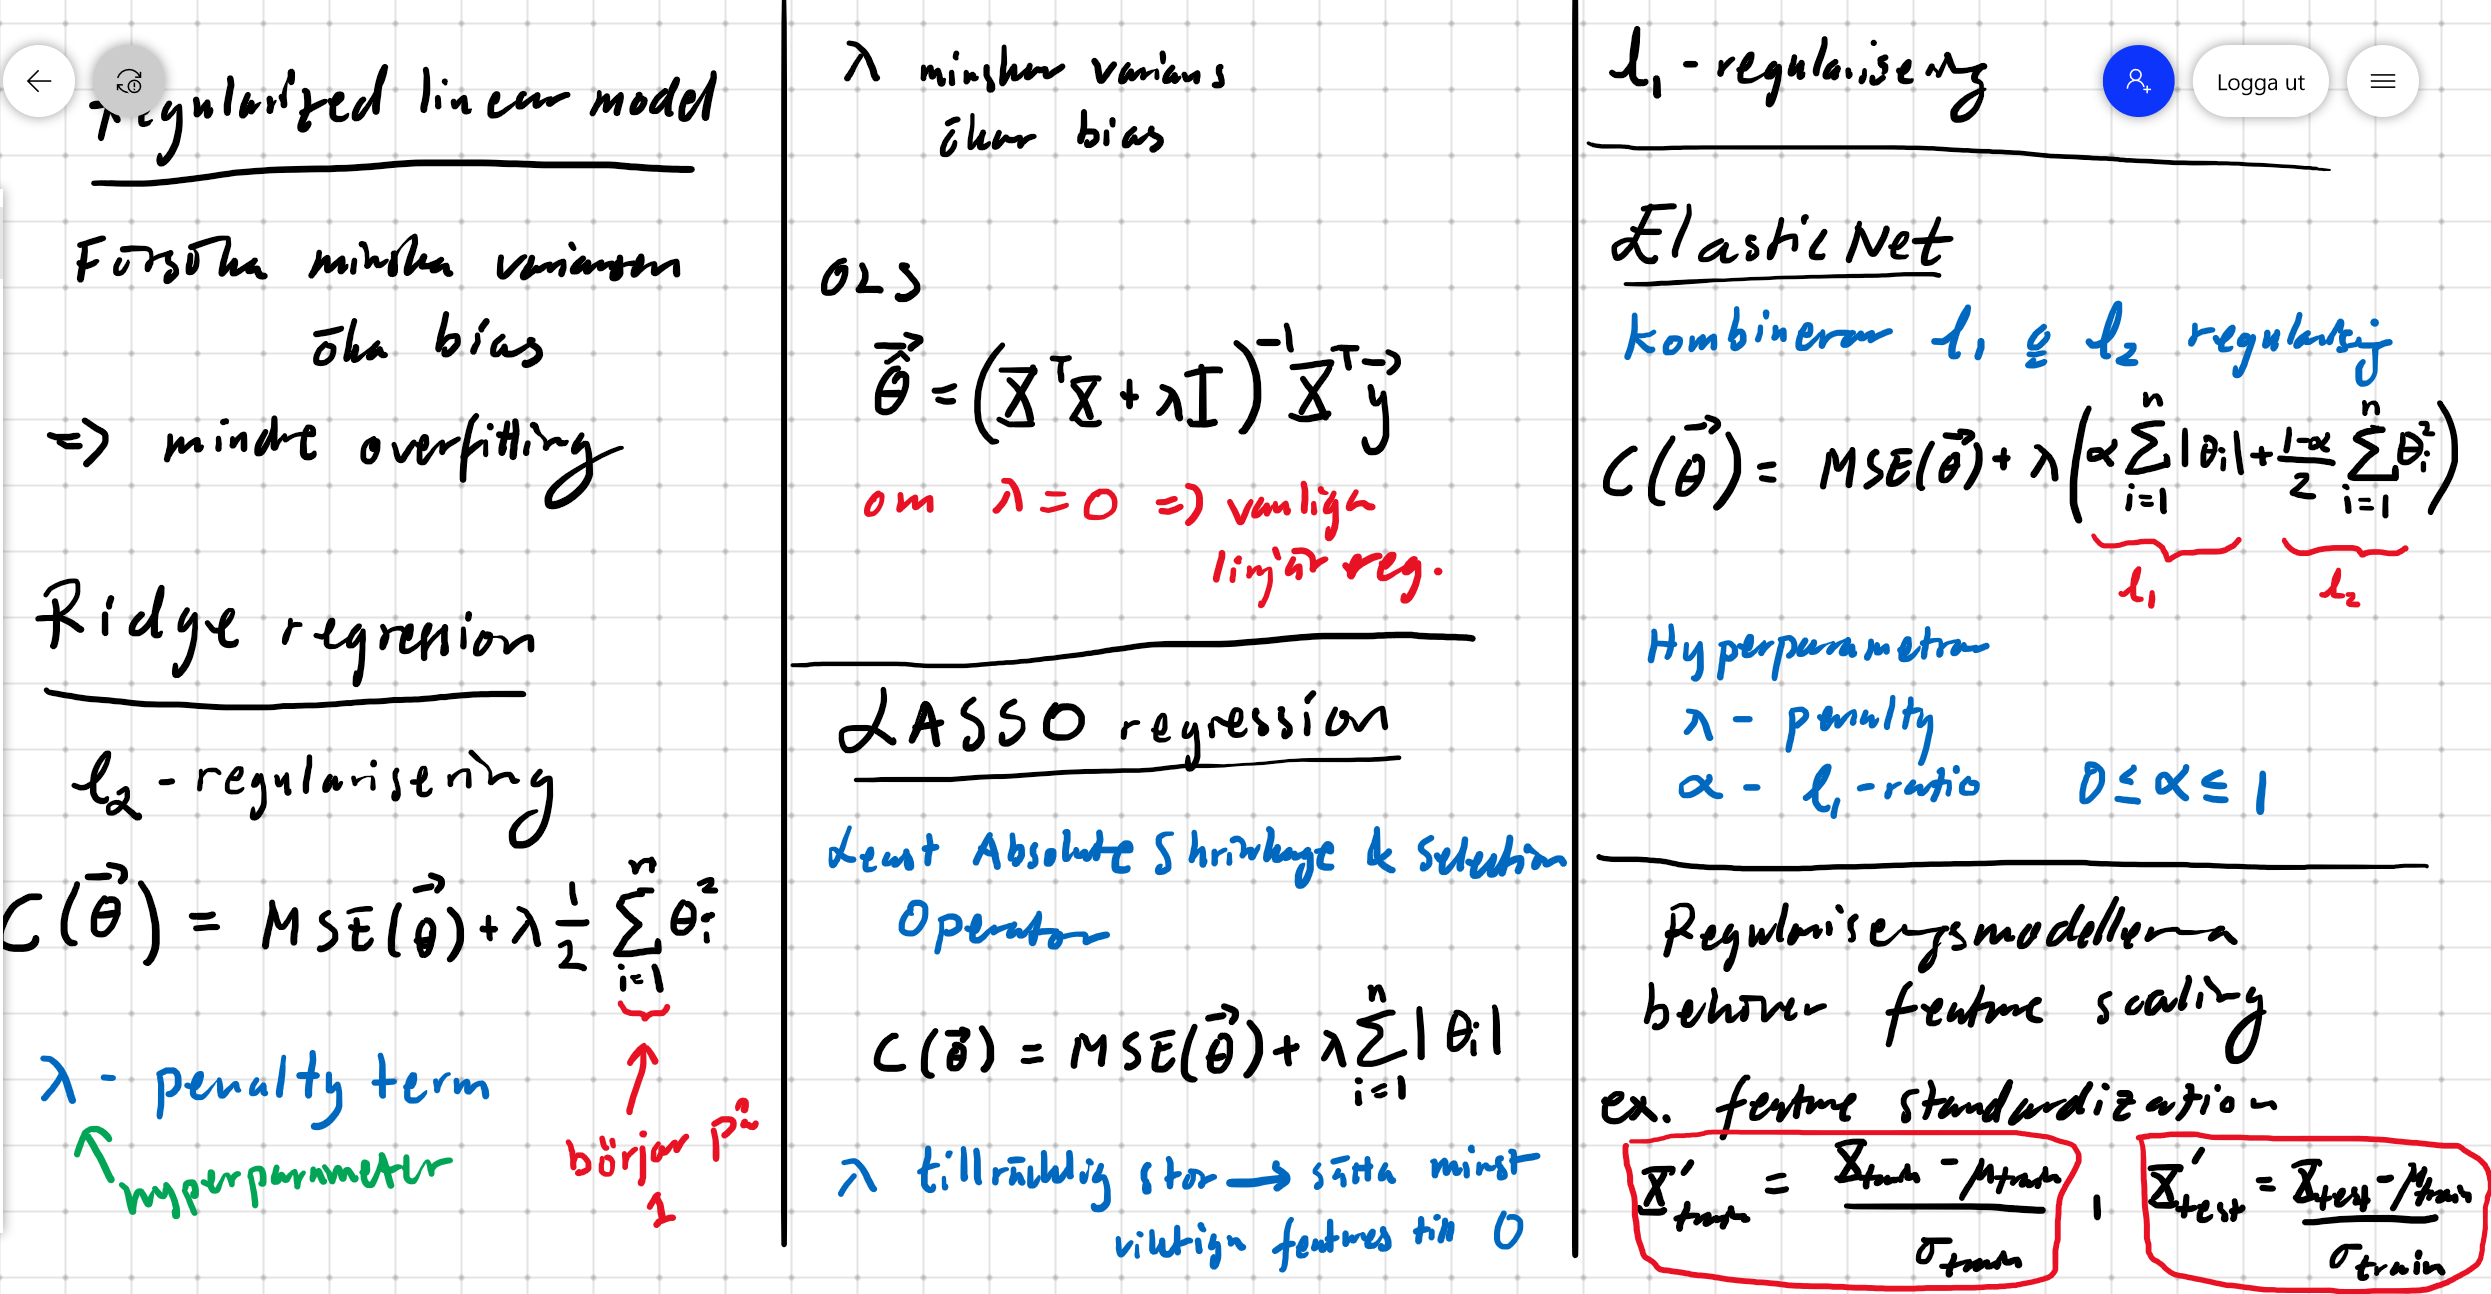 Regularized linear model
Försöka minska variansen
öka bias
=> mindre overfitting
Ridge regression
l₂ - regularisering
C(θ⃗) = MSE(θ⃗) + λ 1/2 Σᵢ₌₁ⁿ θᵢ²
λ - penalty term
hyperparameter
börjar på
1
λ minskar varians
ökar bias
OLS
θ̂⃗ = (XᵀX + λI)⁻¹ Xᵀy⃗
om λ = 0 => vanliga
linjär reg.
LASSO regression
Least Absolute Shrinkage & Selection
Operator
C(θ⃗) = MSE(θ⃗) + λ Σᵢ₌₁ⁿ |θᵢ|
λ tillräcklig stor → sätta minst
viktiga features till 0
l₁ - regularisering
Logga ut
Elastic Net
Kombinerar l₁ o l₂ regularisering
C(θ⃗) = MSE(θ⃗) + λ(α Σᵢ₌₁ⁿ |θᵢ| + (1-α)/2 Σᵢ₌₁ⁿ θᵢ²)
l₁ l₂
Hyperparametrar
λ - penalty
α - l₁ - ratio 0 ≤ α ≤ 1
Regulariseringsmodellerna
behöver feature scaling
ex. feature standardization
X'train = (Xtrain - μtrain)/σtrain , X'test = (Xtest - μtrain)/σtrain